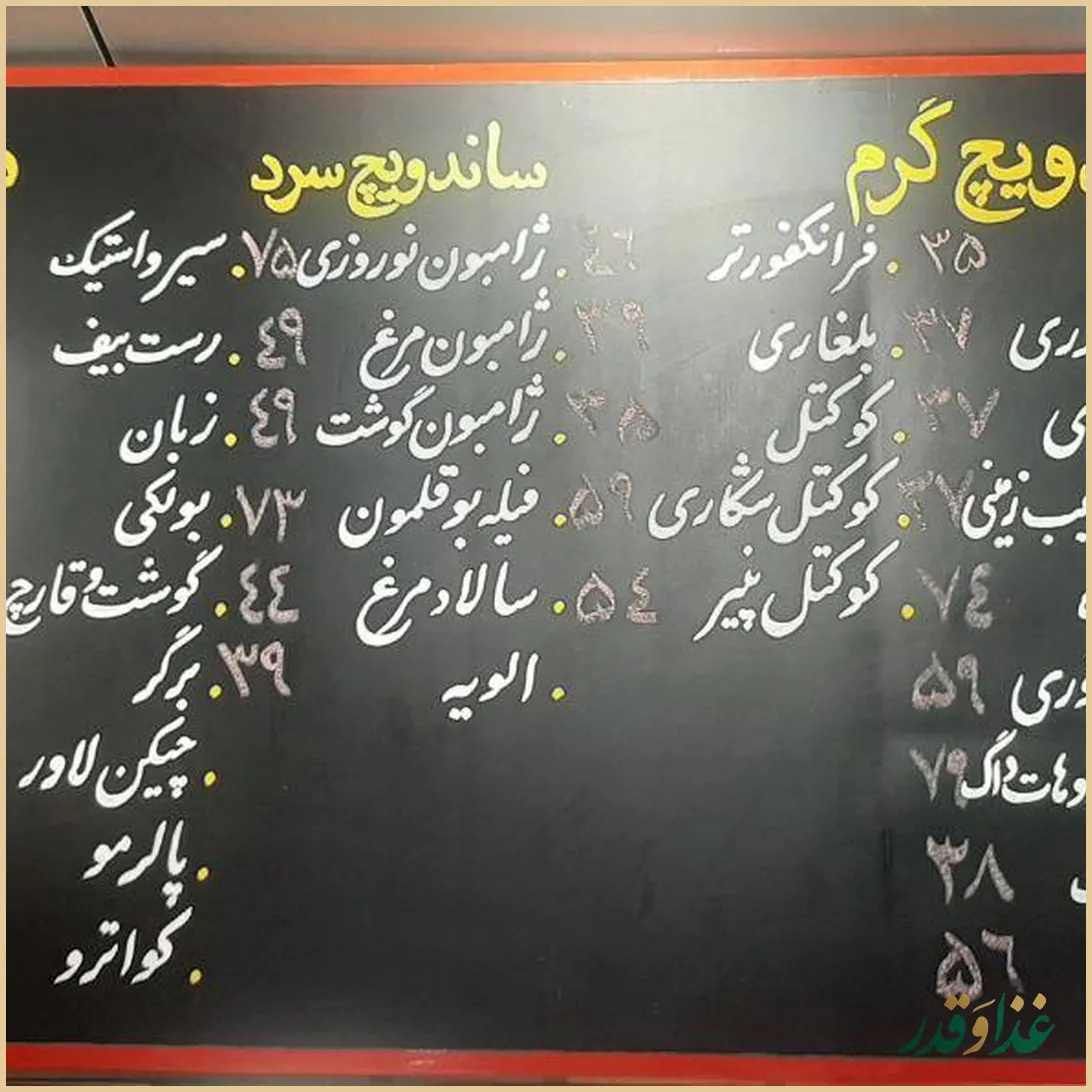 ویچ گرم
۳۵
۳۷
۳۷
زمینی ۳۷
۷۴
۵۹
هات داگ ۷۹
۳۸
۵۶
فرانکفورتر ۴۶
بلغاری ۳۹
کوکتل ۳۵
کوکتل شکاری ۵۹
کوکتل پنیر ۵۴
ساندویچ سرد
ژامبون نوروزی ۷۵
ژامبون مرغ ۴۹
ژامبون گوشت ۴۹
فیله بوقلمون ۷۳
سالاد مرغ ۴۴
الویه ۳۹
سیر و استیک
رست بیف
زبان
بولکی
گوشت و قارچ
برگر
چیکن لاور
پالرمو
کواترو
غذا و قدر